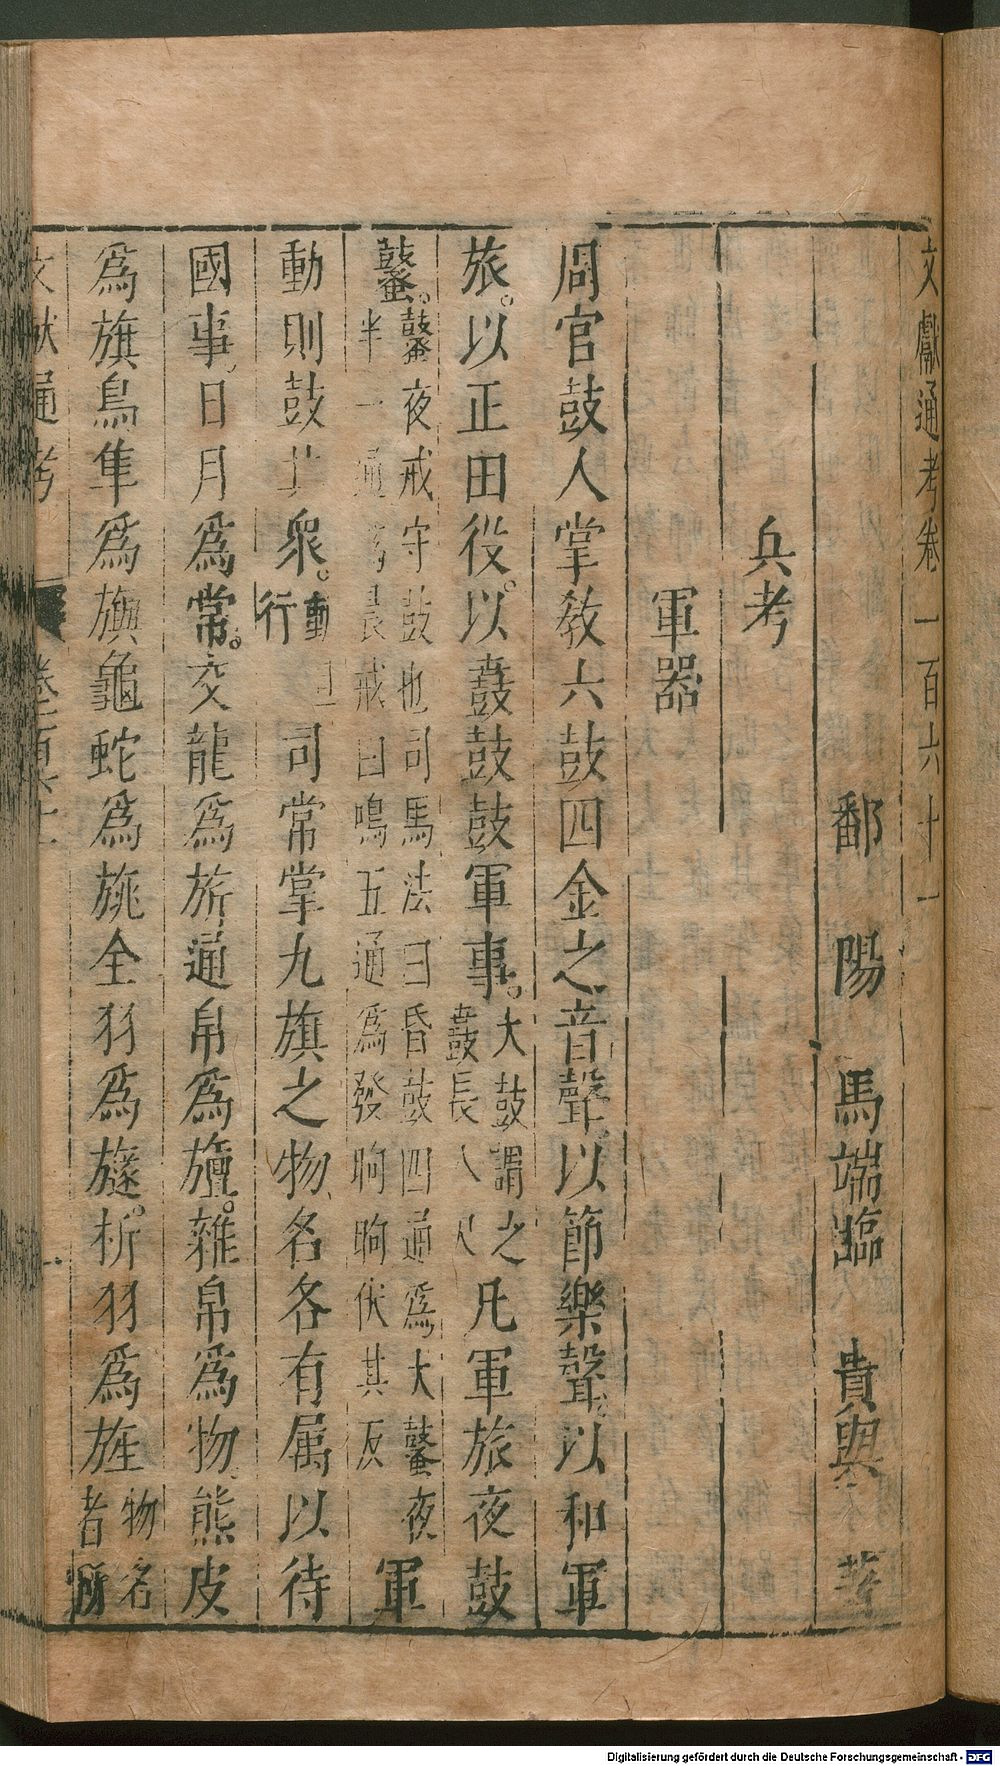 文獻通考卷一百六十一
鄱陽馬端臨貴與著
兵考
軍器
周官鼓人掌教六鼓四金之音聲以節樂聲以和軍
旅。以正田役。以鼖鼓鼓軍事。大鼓謂之鼖鼓長八尺凡軍旅夜鼓
鼜。鼓鼜夜戒守鼓也司馬法曰昏鼓四通為大鼜夜半一通為晨戒旦鳴五通為發昫昫伏其反軍
動則鼓其衆。動且行司常掌九旗之物名各有属以待
國事日月為常。交龍為旂通帛為旜。雜帛為物熊皮
為旗鳥隼為旟龜蛇為旐全羽為旞。析羽為旌物名者所
文獻通考
Digitalisierung gefördert durch die Deutsche Forschungsgemeinschaft - DFG